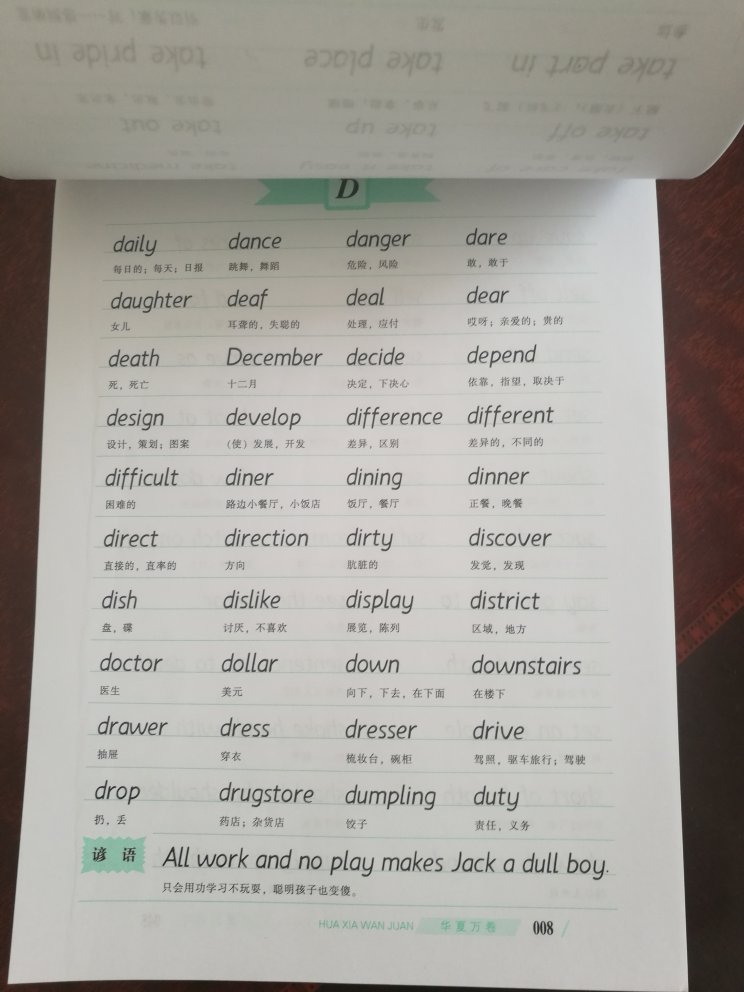 take care of take it easy take medicine
take off take up take out
take part in take place take pride in
参加 发生
D
daily dance danger dare
每日的；每天；日报 跳舞，舞蹈 危险，风险 敢，敢于
daughter deaf deal dear
女儿 耳聋的，失聪的 处理，应付 哎呀；亲爱的；贵的
death December decide depend
死，死亡 十二月 决定，下决心 依靠，指望，取决于
design develop difference different
设计，策划；图案 （使）发展，开发 差异，区别 差异的，不同的
difficult diner dining dinner
困难的 路边小餐厅，小饭店 饭厅，餐厅 正餐，晚餐
direct direction dirty discover
直接的，直率的 方向 肮脏的 发觉，发现
dish dislike display district
盘，碟 讨厌，不喜欢 展览，陈列 区域，地方
doctor dollar down downstairs
医生 美元 向下，下去，在下面 在楼下
drawer dress dresser drive
抽屉 穿衣 梳妆台，碗柜 驾照，驱车旅行；驾驶
drop drugstore dumpling duty
扔，丢 药店；杂货店 饺子 责任，义务
谚 语 All work and no play makes Jack a dull boy.
只会用功学习不玩耍，聪明孩子也变傻。
HUA XIA WAN JUAN 华夏万卷 008 /